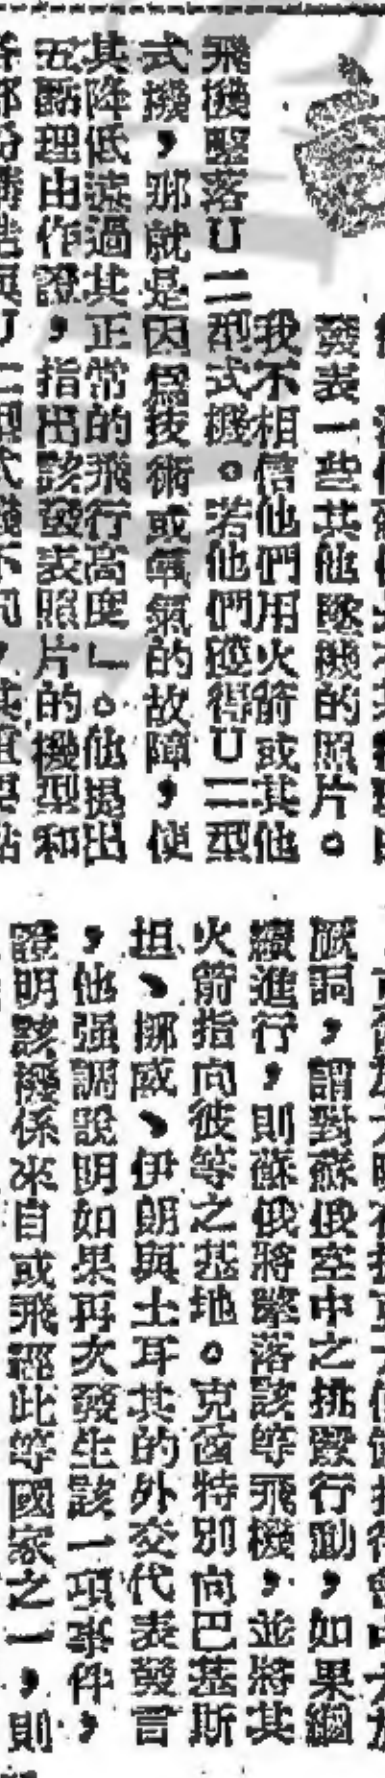 發表一些其他墜機的照片。
我不相信他們用火箭或其他
飛機擊落U二型式機。若他們獲得U二型
式機,那就是因爲技術或氧氣的故障,使
其降低遠過其正常的飛行高度」。他提出
五點理由作證,指出該發表照片的機型和
厥詞,謂對蘇俄空中之挑釁行動,如果繼
續進行,則蘇俄將擊落該等飛機,並將其
火箭指向彼等之基地。克酋特別向巴基斯
坦、挪威、伊朗與土耳其的外交代表發言
,他强調說明如果再次發生該一項事件,
證明該機係來自或飛經此等國家之一,則